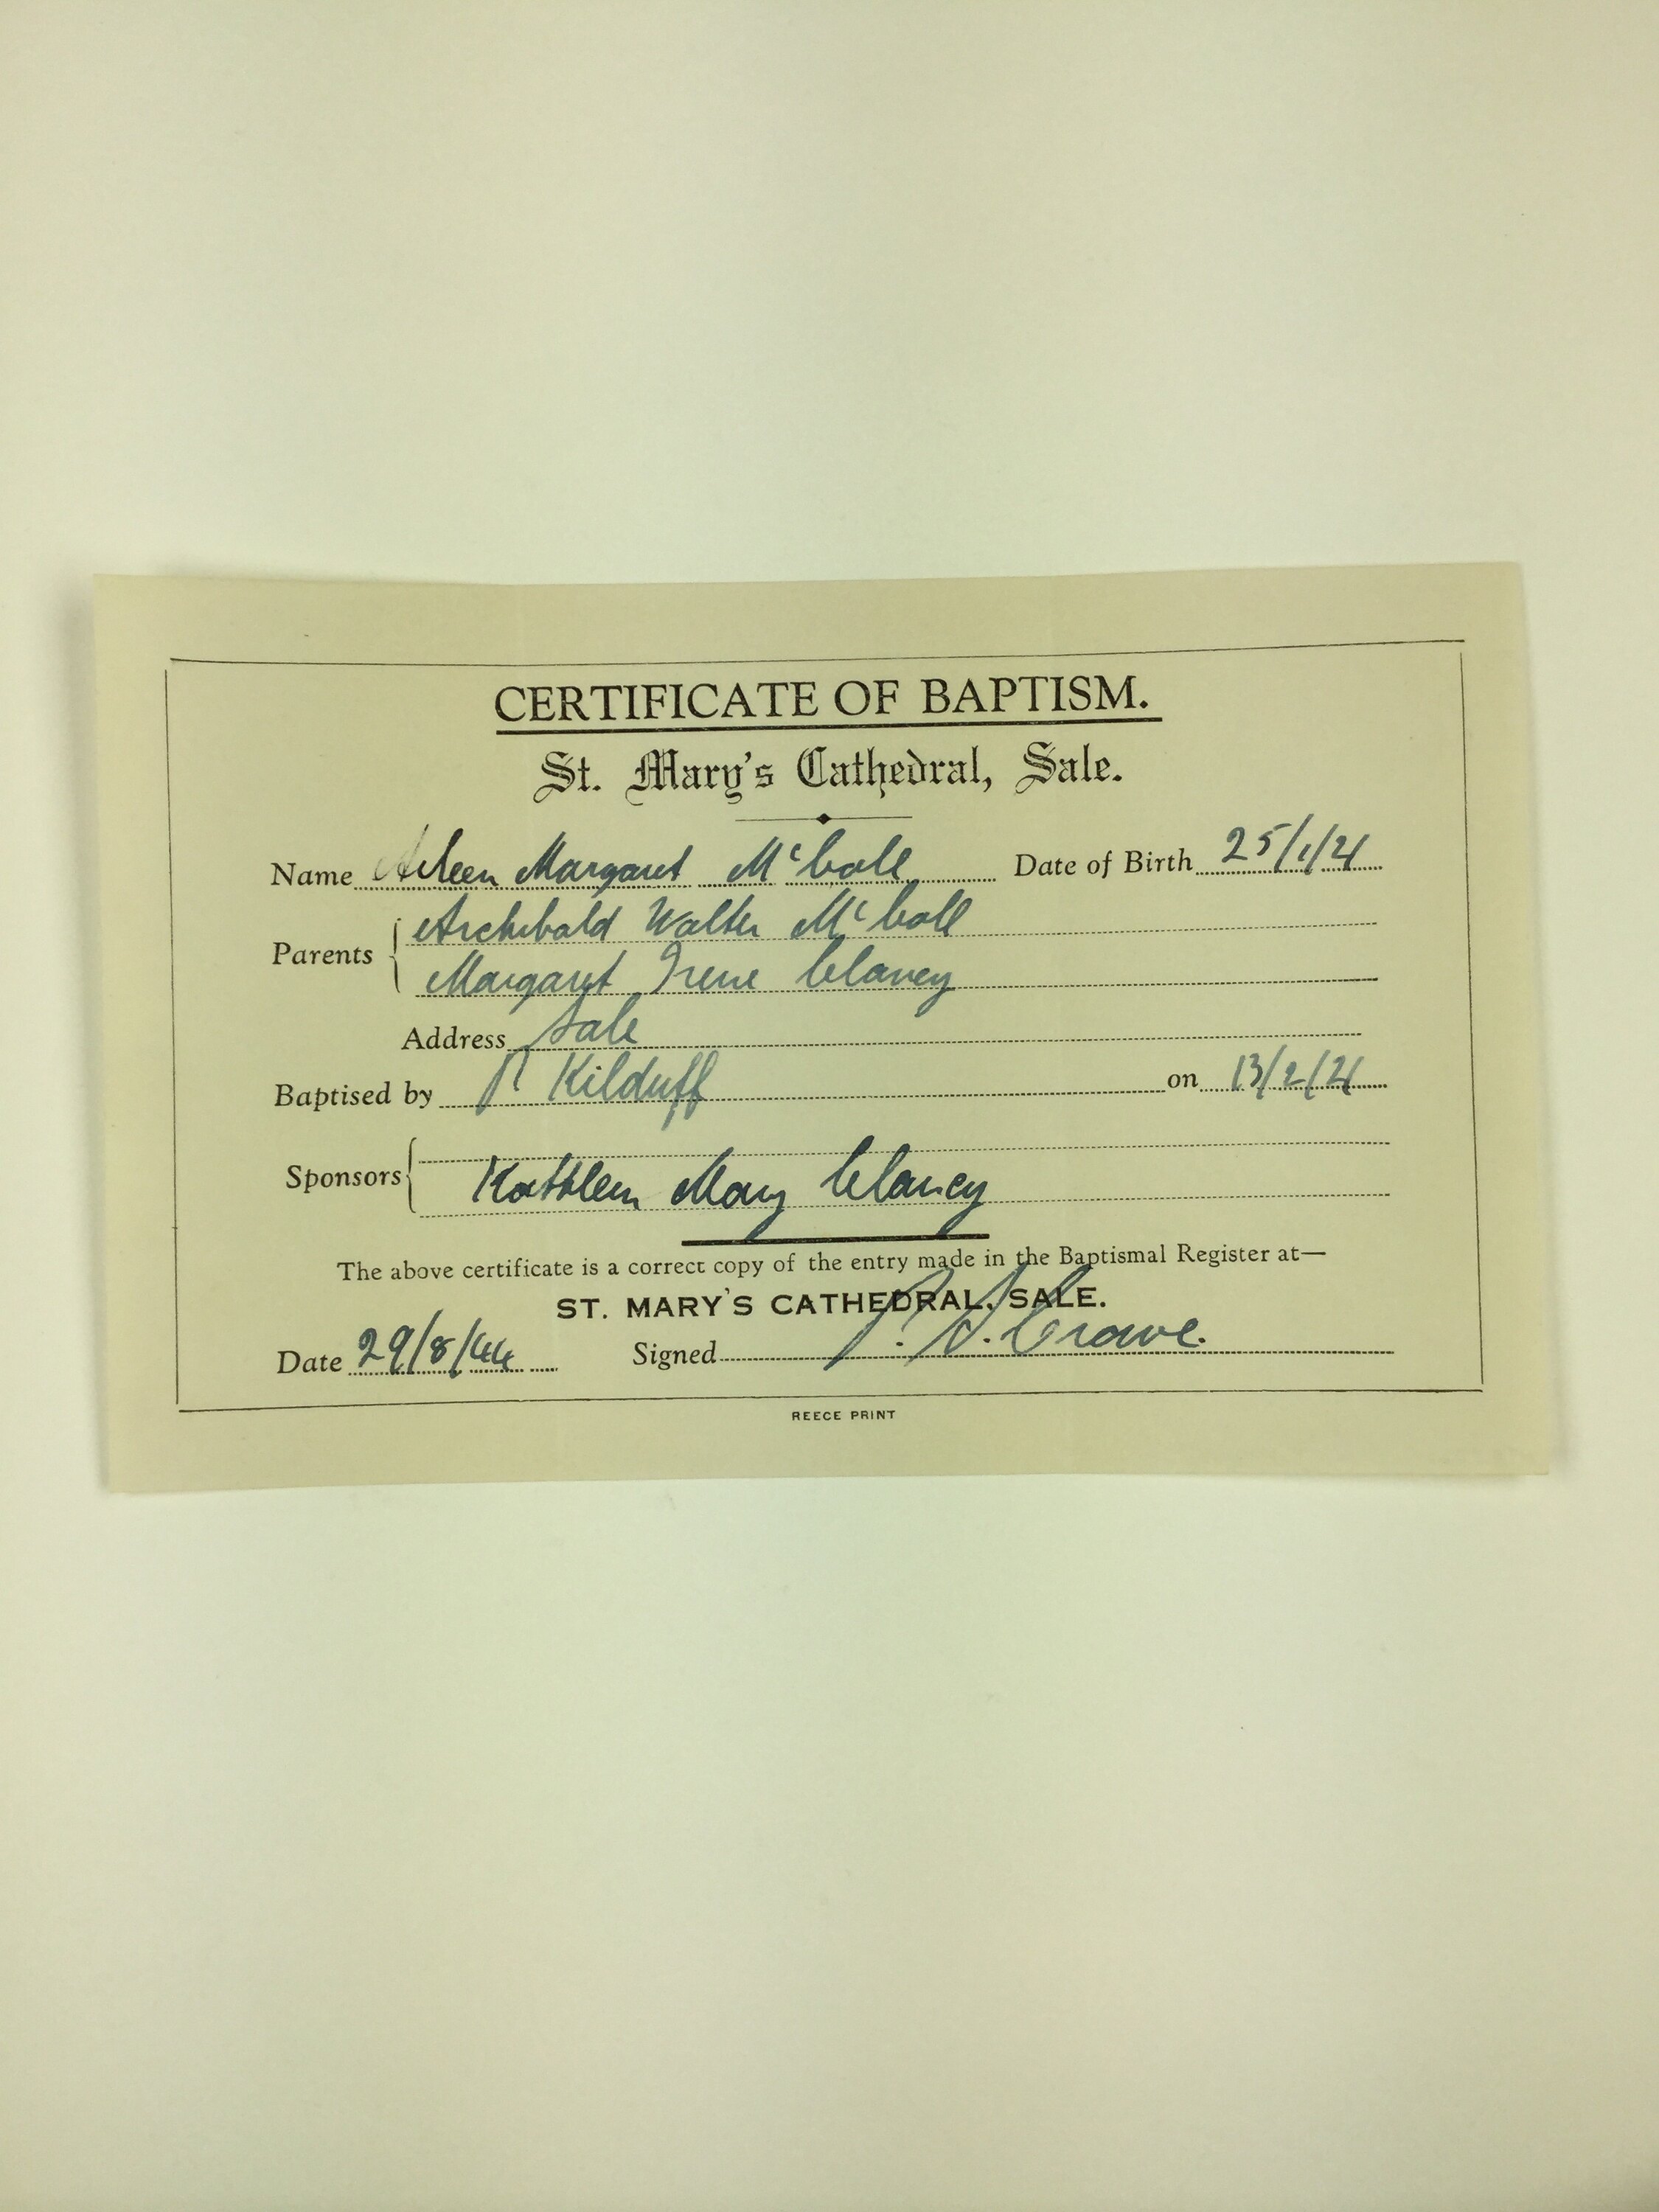 CERTIFICATE OF BAPTISM.
St. Mary's Cathedral, Sale.
Name Aileen Margaret McColl Date of Birth 25/1/21
Parents { Archibald Walter McColl
Margaret Irene Clancy
Address Sale
Baptised by P Kilduff on 13/2/21
Sponsors {
Kathleen Mary Clancy
The above certificate is a correct copy of the entry made in the Baptismal Register at—
ST. MARY'S CATHEDRAL, SALE.
Date 29/8/44 Signed P. J. Crowe.
REECE PRINT